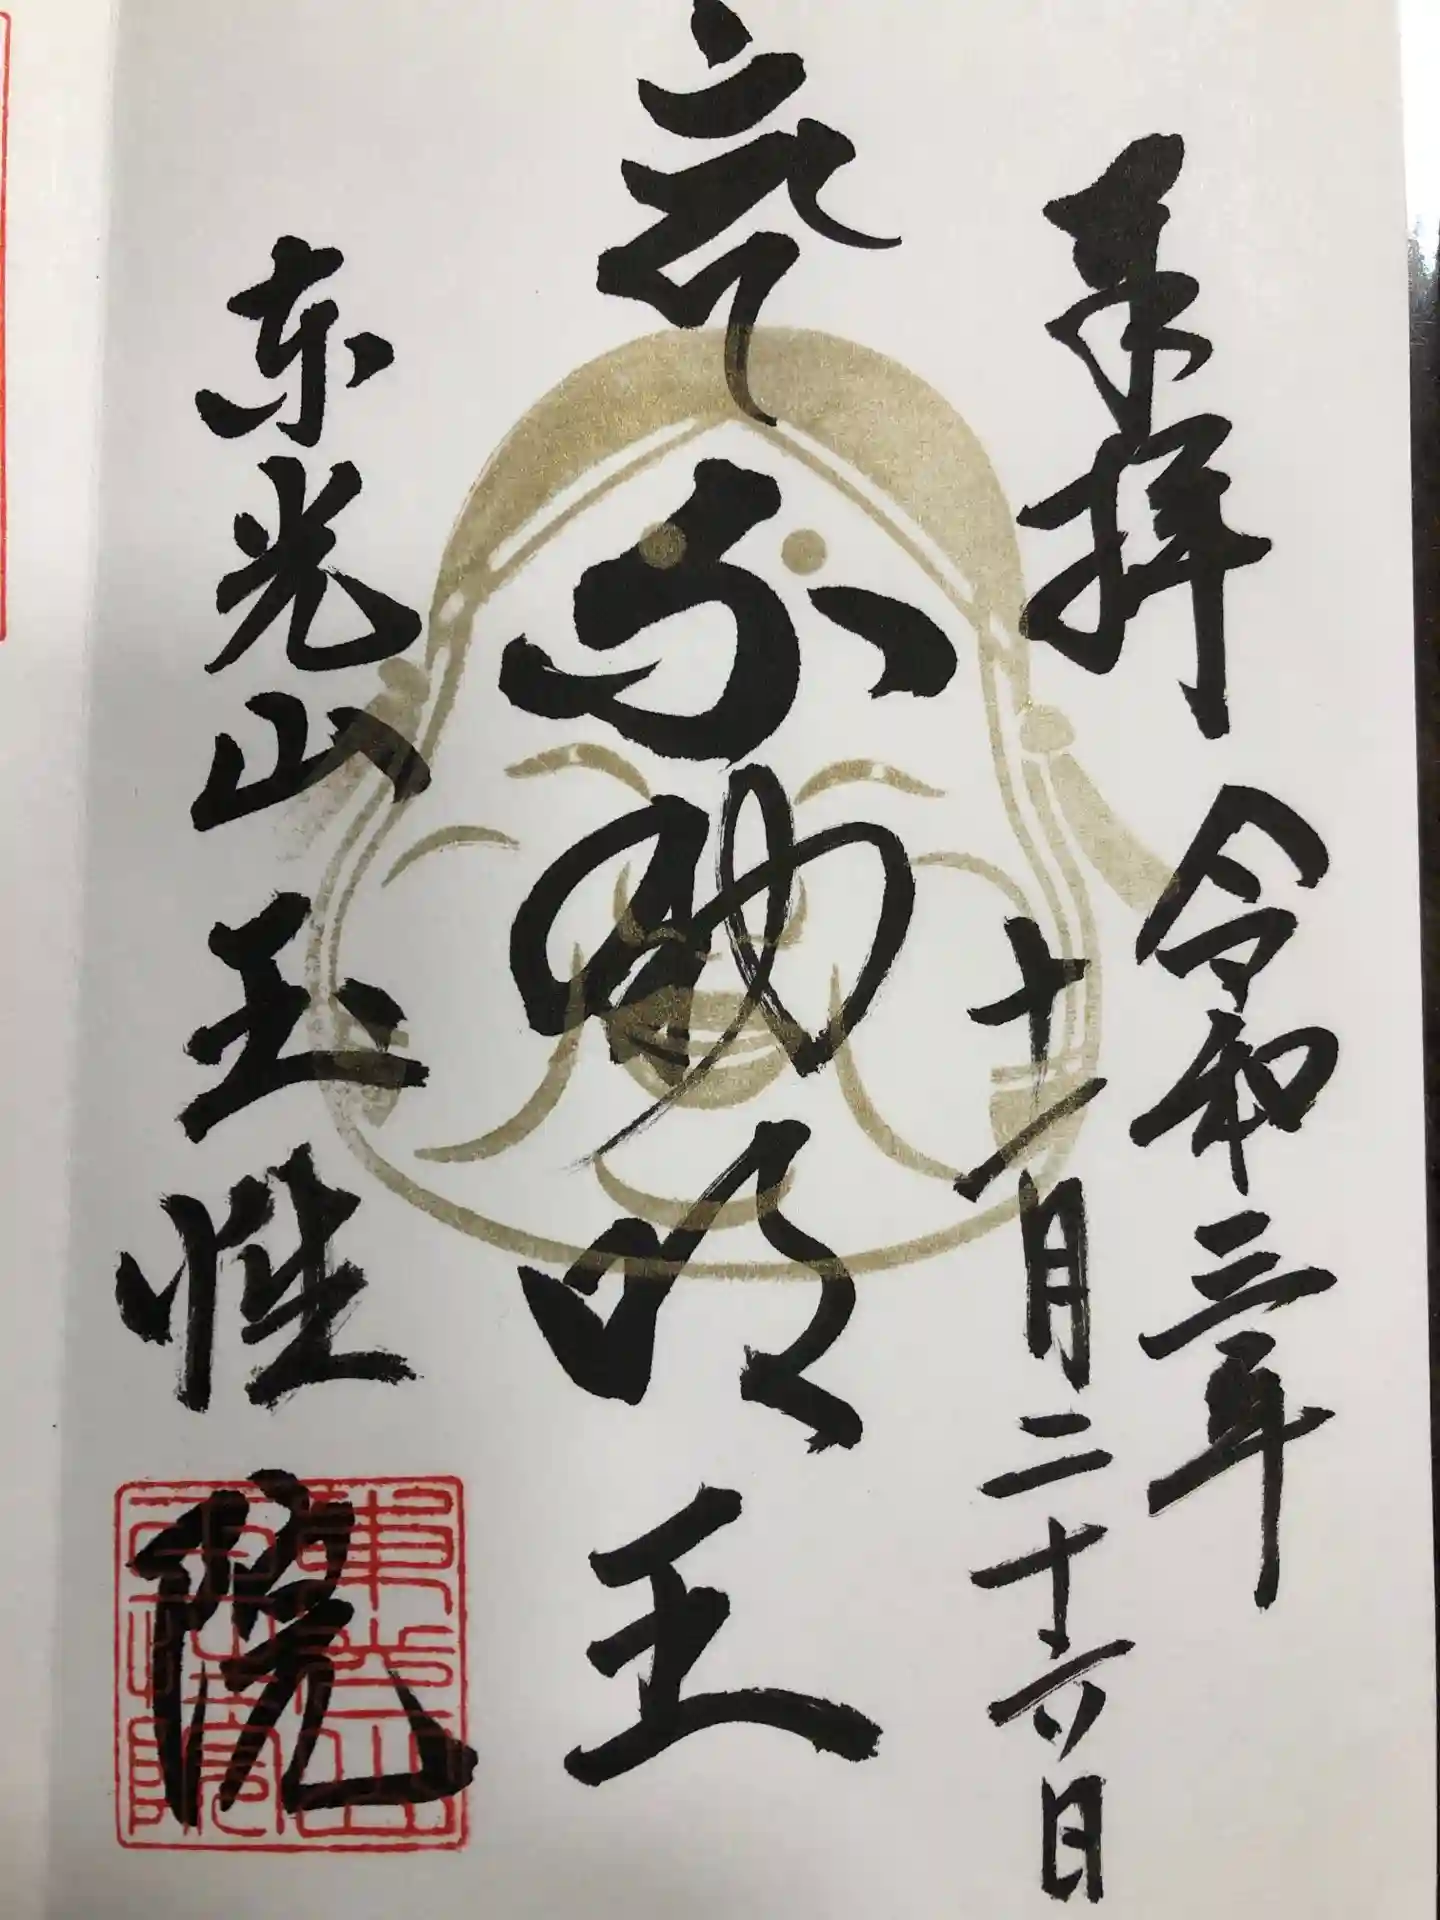 奉拝 令和三年
十一月二十六日
不動明王
東光山玉性院
東光山
玉性院